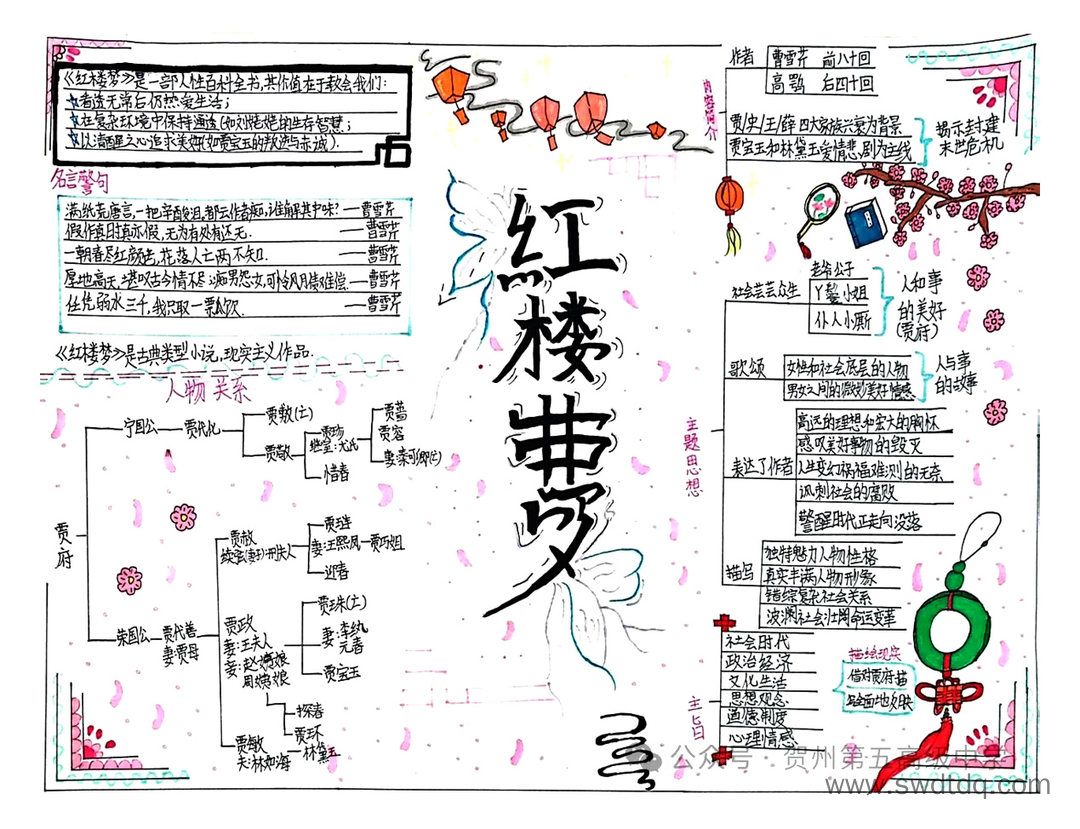 《红楼梦》是一部人性百科全书,其价值在于教会我们:
看透无常后仍热爱生活;
在复杂环境中保持通透(如刘姥姥的生存智慧;
以清醒之心追求美好(如贾宝玉的叛逆与赤诚).
名言警句
满纸荒唐言,一把辛酸泪,都云作者痴,谁解其中味?——曹雪芹
假作真时真亦假,无为有处有还无.——曹雪芹
一朝春尽红颜老,花落人亡两不知.——曹雪芹
厚地高天,堪叹古今情不尽;痴男怨女,可怜风月债难偿.——曹雪芹
任凭弱水三千,我只取一瓢饮.——曹雪芹
《红楼梦》是古典类型小说,现实主义作品.
人物关系
贾府
宁国公
贾代化
贾敷(亡)
贾敬
贾珍
继室:尤氏
惜春
贾蔷
贾容
妻:秦可卿(亡)
荣国公
贾代善
妻:贾母
贾赦
续室(妻子):刑夫人
贾琏
妻:王熙凤
贾巧姐
迎春
贾政
妻:王夫人
妾:赵姨娘
周姨娘
贾珠(亡)
妻:李纨
元春
贾宝玉
探春
贾环
贾敏
夫:林如海
林黛玉
红楼梦
内容简介
作者
曹雪芹 前八十回
高鹗 后四十回
贾/史/王/薛四大家族兴衰为背景
贾宝玉和林黛玉爱情悲剧为主线
揭示封建
末世危机
主题思想
社会芸芸众生
老爷公子
丫鬟小姐
仆人小厮
人和事
的美好
(贾府)
歌颂
女性和社会底层的人物
男女之间的微妙美好情感
人与事
的故事
表达了作者
高远的理想和宏大的胸怀
感叹美好事物的毁灭
人生变幻祸福难测的无奈
讽刺社会的腐败
警醒时代正走向没落
描写
独特魅力人物性格
真实丰满人物形象
错综复杂社会关系
波澜社会壮阔命运变革
主旨
社会时代
政治经济
文化生活
思想观念
道德制度
心理情感
描绘现实
借对贾府描
写全面地反映
公众号·贺州第五高级中学
www.swdtdq.com